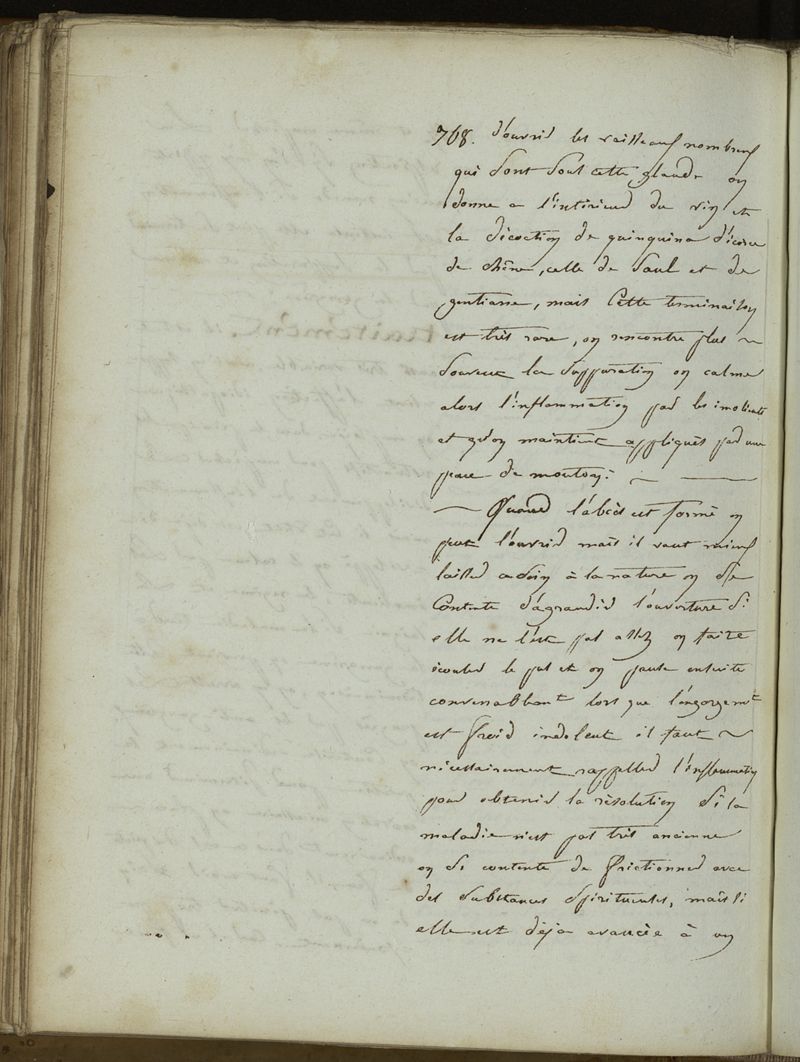 768. d'ouvrir les vaisseaux nombreux
qui sont sous cette glande on
donne a l'intérieur du vin et
la décoction de quinquina d'écorce
de chêne, celle de saul et de
gentiane, mais cette terminaison
est très rare, on rencontre plus ~
souvent la suppuration on calme
alors l'inflammation par les imolients
et qu'on maintient appliqués par une
peau de mouton: ~ —
— Quand l'abcès est formé on
peut l'ouvrir mais il vaut mieux
laisser ce soin à la nature on se
contente d'agrandir l'ouverture si
elle ne l'est pas assez on faire
écouler le pus et on panse ensuite
convenablent lors que l'engorgemt
est froid indolent il faut ~
nécessairement rappeller l'inflammation
pour obtenir la résolution si la
maladie n'est pas très ancienne
on se contente de frictionner avec
des substances spiritueuses, mais si
elle est déja avancée à un